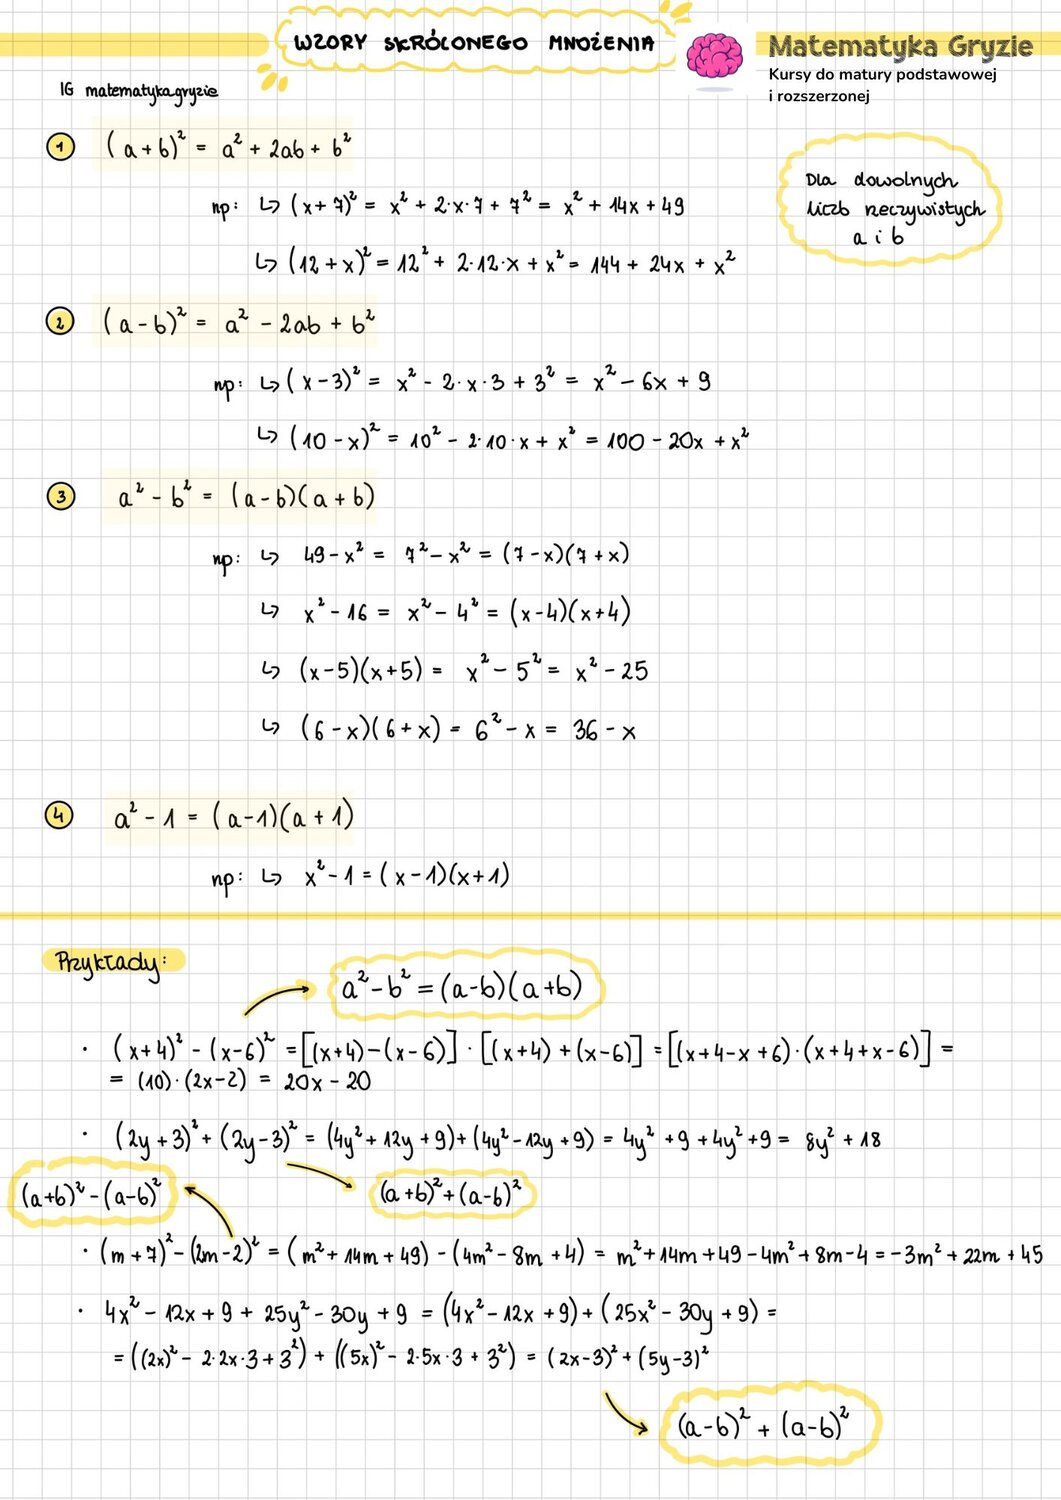 WZORY SKRÓCONEGO MNOŻENIA
Matematyka Gryzie
Kursy do matury podstawowej
i rozszerzonej
IG matematykagryzie
1 (a+b)² = a² + 2ab + b²
Dla dowolnych
liczb rzeczywistych
a i b
np: ↳ (x+7)² = x² + 2·x·7 + 7² = x² + 14x + 49
↳ (12+x)² = 12² + 2·12·x + x² = 144 + 24x + x²
2 (a-b)² = a² - 2ab + b²
np: ↳ (x-3)² = x² - 2·x·3 + 3² = x² - 6x + 9
↳ (10-x)² = 10² - 2·10·x + x² = 100 - 20x + x²
3 a² - b² = (a-b)(a+b)
np: ↳ 49-x² = 7²-x² = (7-x)(7+x)
↳ x²-16 = x²-4² = (x-4)(x+4)
↳ (x-5)(x+5) = x²-5² = x²-25
↳ (6-x)(6+x) = 6²-x = 36-x
4 a²-1 = (a-1)(a+1)
np: ↳ x²-1 = (x-1)(x+1)
Przykłady:
a²-b² = (a-b)(a+b)
· (x+4)² - (x-6)² = [(x+4)-(x-6)] · [(x+4)+(x-6)] = [(x+4-x+6)·(x+4+x-6)] =
= (10)·(2x-2) = 20x - 20
· (2y+3)² + (2y-3)² = (4y²+12y+9)+(4y²-12y+9) = 4y²+9+4y²+9 = 8y²+18
(a+b)²-(a-b)²
(a+b)²+(a-b)²
· (m+7)²-(2m-2)² = (m²+14m+49) - (4m²-8m+4) = m²+14m+49-4m²+8m-4 = -3m²+22m+45
· 4x²-12x+9+25y²-30y+9 = (4x²-12x+9)+(25x²-30y+9) =
= ((2x)²-2·2x·3+3²) + ((5x)²-2·5x·3+3²) = (2x-3)²+(5y-3)²
(a-b)² + (a-b)²